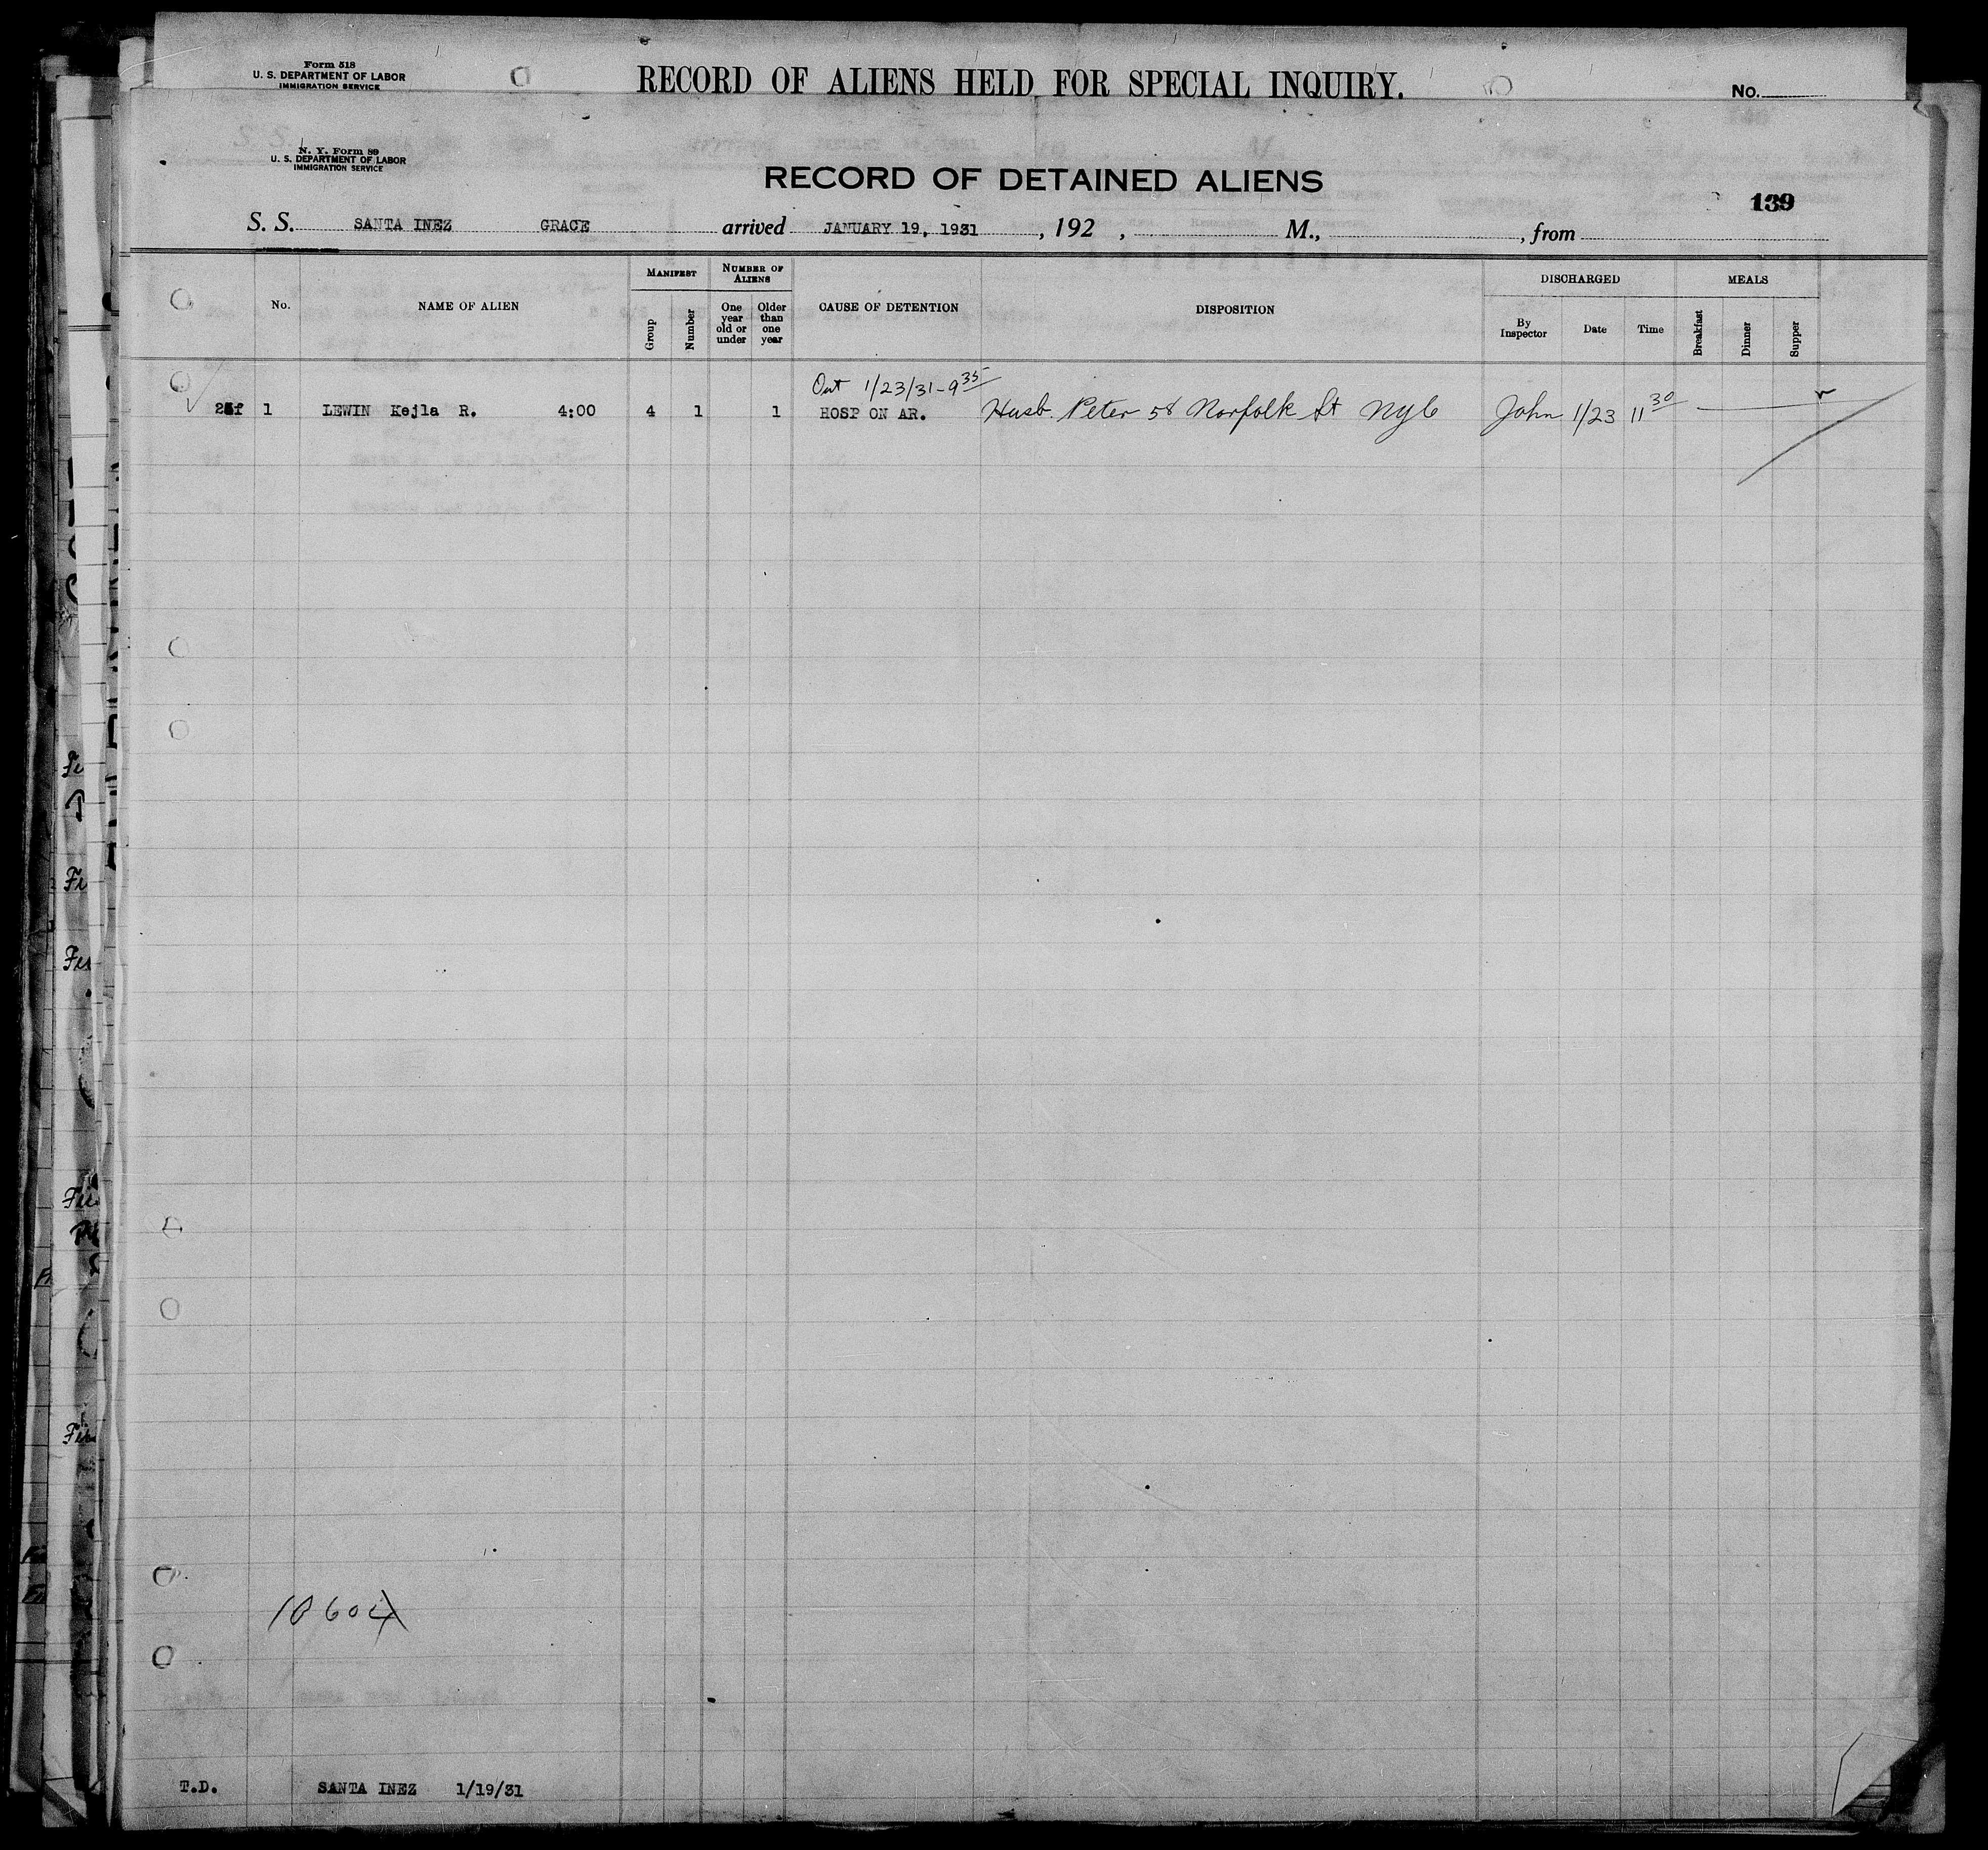 Form 518
U. S. DEPARTMENT OF LABOR
IMMIGRATION SERVICE
RECORD OF ALIENS HELD FOR SPECIAL INQUIRY.
No.
N. Y. Form 89
U. S. DEPARTMENT OF LABOR
IMMIGRATION SERVICE
RECORD OF DETAINED ALIENS
139
S. S. SANTA INEZ GRACE arrived JANUARY 19, 1931, 192 , M., , from
No. NAME OF ALIEN MANIFEST Group Number NUMBER OF ALIENS One year old or under Older than one year CAUSE OF DETENTION DISPOSITION DISCHARGED By Inspector Date Time MEALS Breakfast Dinner Supper
Out 1/23/31-9 35
1 LEWIN Kejla R. 4:00 4 1 1 HOSP ON AR. Husb. Peter 58 Norfolk St NYC John 1/23 11 30
T.D. SANTA INEZ 1/19/31